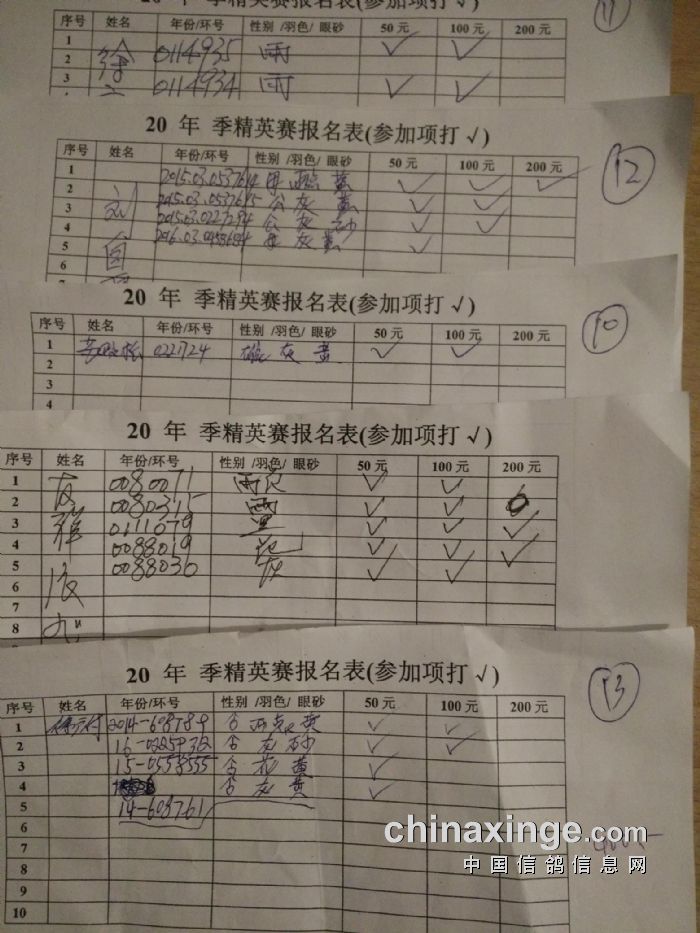 20 年 季精英赛报名表(参加项打 √)
11
序号 姓名 年份/环号 性别 /羽色/ 眼砂 50 元 100 元 200 元
1 0114935 雨 √ √
2 徐
3 0114934 雨 √ √
20 年 季精英赛报名表(参加项打 √)
12
序号 姓名 年份/环号 性别 /羽色/ 眼砂 50 元 100 元 200 元
1 2015.03.0537614 黄 √ √ √
2 刘 2015.03.0537615 公 灰 黄 √ √
3 2015.03.0227294 公 灰 砂 √ √
4 灰 黄 √
5
6
7
20 年 季精英赛报名表(参加项打 √)
10
序号 姓名 年份/环号 性别 /羽色/ 眼砂 50 元 100 元 200 元
1 0221724 雄 灰 黄 √ √
2
3
4
20 年 季精英赛报名表(参加项打 √)
序号 姓名 年份/环号 性别 /羽色/ 眼砂 50 元 100 元 200 元
1 0080071 雨花 √ √ √
2 0080315 雨 √ √
3 0111679 √ √ √
4 0088019 花 √ √ √
5 0088036 灰 √ √
6
7
8
20 年 季精英赛报名表(参加项打 √)
13
序号 姓名 年份/环号 性别 /羽色/ 眼砂 50 元 100 元 200 元
1 2014-608784 黄 √ √
2 16-0225732 灰 砂 √ √
3 15-0558555 花 黄 √
4 灰 黄 √
5 14-608761
6
7
8
9
10
chinaxinge.com
中国信鸽信息网